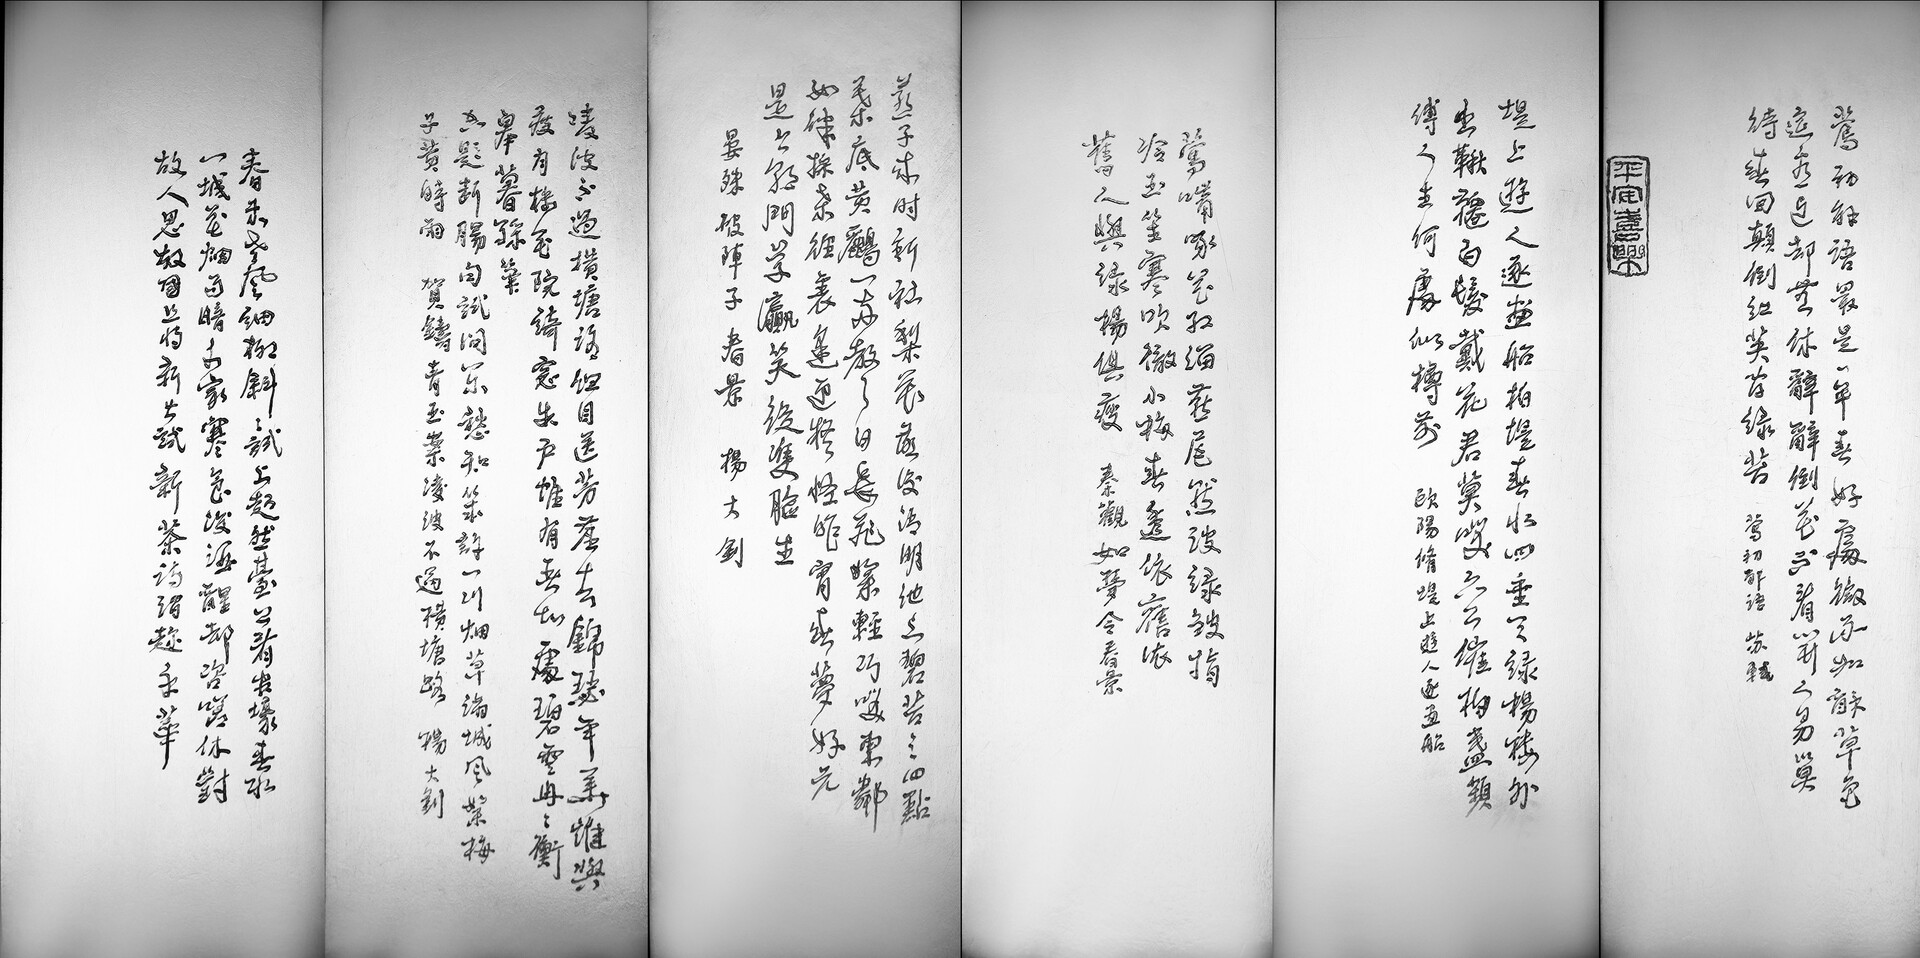 莺初解语最是一年春好處微雨如酥草色
遥看近却無休辭醉倒花不看開人易老莫
待春回顛倒红英间绿苔 莺初解语 苏軾
平安喜樂
堤上遊人逐畫船拍堤春水四垂天绿楊楼外
出鞦韆白髮戴花君莫笑六幺催拍盞頻
傳人生何處似樽前 欧陽脩堤上遊人逐画船
莺嘴啄花红溜燕尾點波绿皱指
冷玉笙寒吹徹小梅春透依舊依
舊人與绿楊俱瘦 秦觀如夢令春景
燕子来时新社梨花落後清明池上碧苔三四點
葉底黄鸝一两聲日長飛絮輕巧笑東鄰
女伴採桑徑裏逢迎疑怪昨宵春夢好元
是今朝鬥草赢笑從雙臉生
晏殊破陣子春景 楊大钊
凌波不過横塘路但目送芳塵去錦瑟年華誰與
度月楼花院綺窓朱户惟有春知處碧雲冉冉蘅
皋暮綵筆
空題断腸句試问閑愁知幾許一川烟草满城风絮梅
子黄時雨 賀鑄青玉案凌波不過横塘路 楊大钊
春未老风细柳斜斜試上超然臺上看半壕春水
一城花烟雨暗千家寒食後酒醒却咨嗟休對
故人思故國且将新火試新茶诗酒趁年華